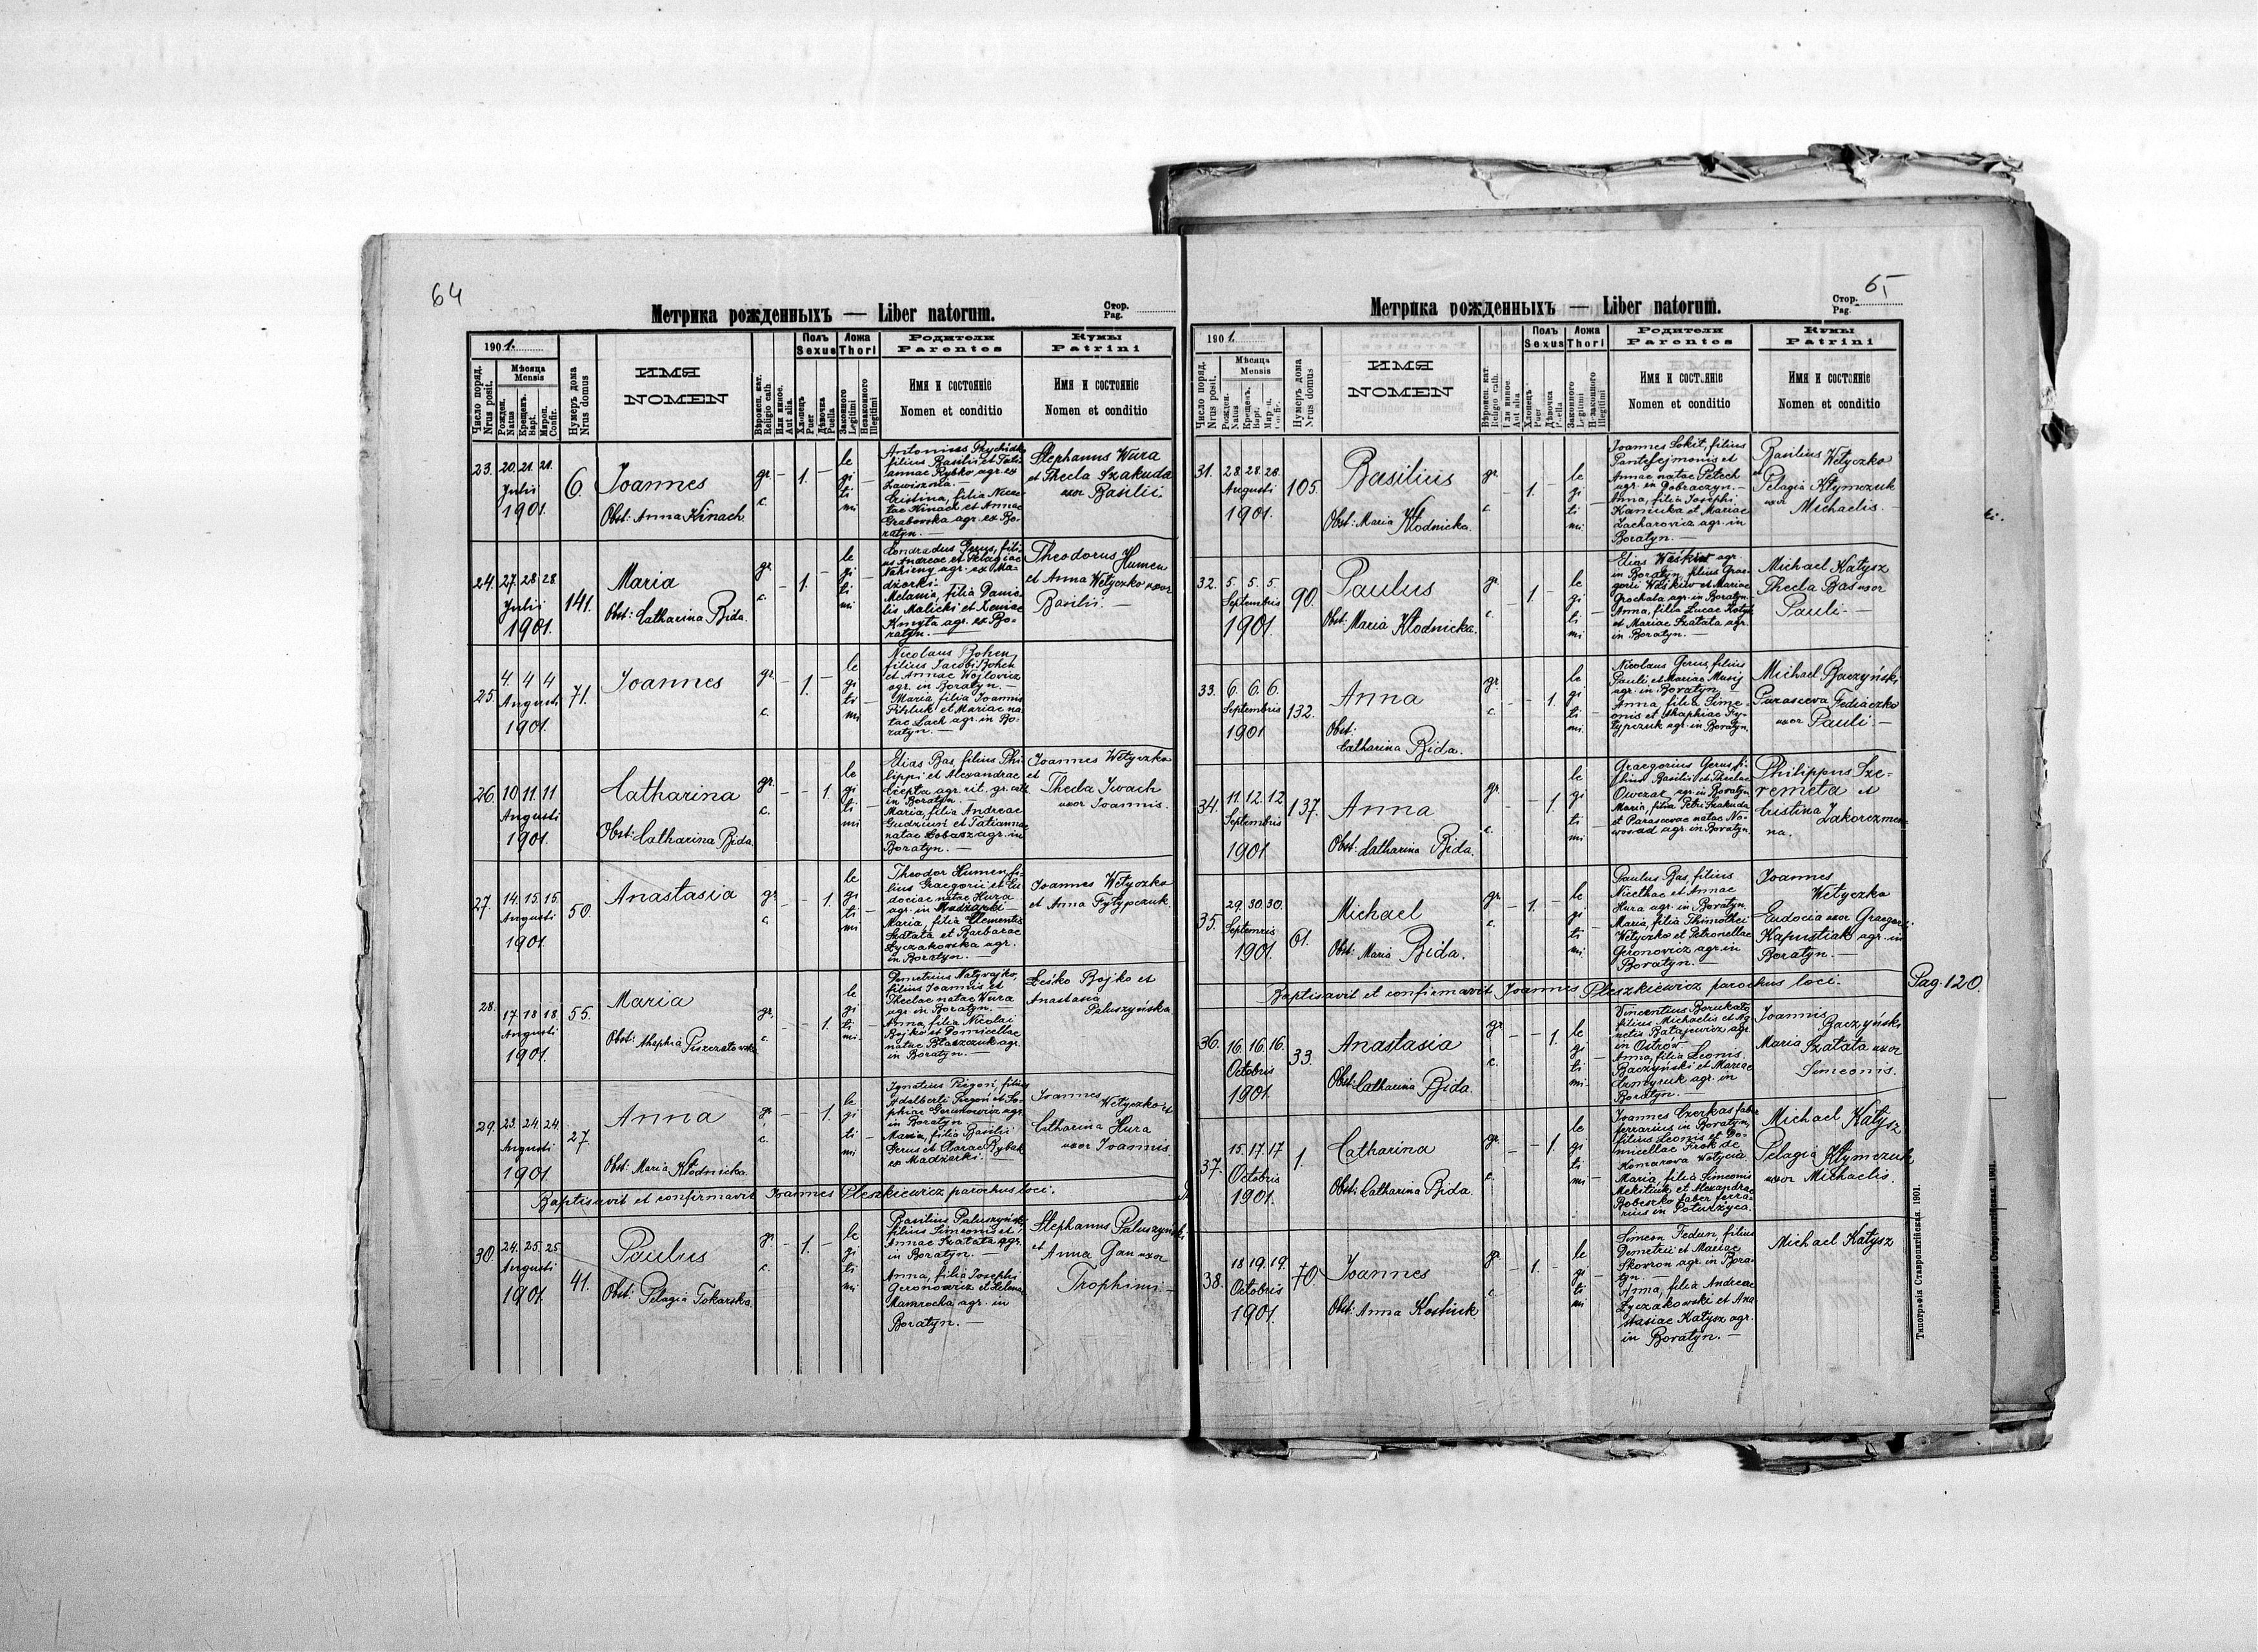 64
Метрика рожденныхъ — Liber natorum.
Стор.
Pag.
1901.
Число поряд.
Nrus posit.
Мѣсяца
Mensis
Рожден.
Natus
Крещенъ.
Bapt.
Мѵроп.
Confir.
Нумеръ дома
Nrus domus
ИМЯ
NOMEN
Вѣроисп. кат.
Religio cath.
Или иное.
Aut alia.
Полъ
Sexus
Хлопецъ
Puer
Дѣвочка
Puella
Ложа
Thori
Законного
Legitimi
Незаконного
Illegitimi
Родители
Parentes
Имя и состояніе
Nomen et conditio
Кумы
Patrini
Имя и состояніе
Nomen et conditio
23. 20. 21. 21.
Julii
1901.
6.
Joannes
Obst: Anna Kinach.
gr. c.
1.
le
gi
ti
mi
Antonius
filius Basilii et Tati-
annae Rybko agr. ex
Zawisznia. —
Cristina, filia Nice-
tae Kinach et Annae
Grabowska agr. ex Bo-
ratyn. —
Stephanus Wura
et Thecla Szakuda
uxor Basilii
24. 27. 28 28
Julii
1901.
141.
Maria
Obst: Catharina Bida.
gr. c.
1.
le
gi
ti
mi
Condradus Gerus, fili-
us Andreae et Pelagiae
agr. ex Ma-
dziarki. —
Melania, filia Danie-
lis Malicki et Xeniae
Kmyta agr. ex Bo-
ratyn. —
Theodorus Humen
et Anna Wetyczko uxor
Basilii —
25. 4. 4 4
Augusti
1901.
71.
Joannes
gr. c.
1.
le
gi
ti
mi
Nicolaus Bohen,
filius Jacobi Bohen
et Annae Wojtowicz
agr. in Boratyn. —
Maria, filia Joannis
Pihluk et Mariae na-
tae Lach agr. in Bo-
ratyn. —
26. 10 11. 11
Augusti
1901.
Catharina
Obst: Catharina Bida.
gr. c.
1.
le
gi
ti
mi
Elias Bas, filius Phi-
lippi et Alexandrae
agr. rit. gr. cath.
in Boratyn.
Maria, filia Andreae
Gudziun et Tatiannae
natae Lobasz agr. in
Boratyn. —
Joannes Wetyczko
et
Thecla Iwach
uxor Joannis.
27. 14. 15. 15.
Augusti
1901.
50.
Anastasia
gr. c.
1.
le
gi
ti
mi
Theodor Humen fi-
lius Graegorii et Eu-
dociae natae Hura
agr. in
Maria, filia Clementis
Szatata et Barbarae
Łyczakowska agr.
in Boratyn. —
Joannes Wetyczko
et Anna Fytypczuk.
28. 17 18 18.
Augusti
1901.
55.
Maria
Obst:
gr. c.
1.
le
gi
ti
mi
Demetrius Natywajko,
filius Joannis et
Theclae natae Wura
agr. in Boratyn. —
Anna, filia Nicolai
Bojko et Domicellae
natae Błaszczuk agr.
in Boratyn. —
Leśko Bojko et
Anastasia
Paluszyńska.
29. 23. 24 24.
Augusti
1901.
27.
Anna
Obst: Maria Kłodnicka.
gr. c.
1.
le
gi
ti
mi
Ignatius Piegoń, filius
Adalberti Piegoń et So-
phiae Gerunowicz agr.
in Boratyn —
Maria, filia Basilii
Gerus et Clarae Rybak
ex Madziarki. —
Joannes
Wetyczko et
Catharina Hura
uxor Joannis.
Baptisavit et confirmavit Joannes Pleszkiewicz parochus loci.
30. 24. 25. 25.
Augusti
1901.
41.
Paulus
Obst: Pelagia Tokarska.
gr. c.
1.
le
gi
ti
mi
Basilius Paluszyński
filius Simeonis et
Annae Szatata agr.
in Boratyn. —
Anna, filia Josephi
Geronowicz et Helenae
Mamrocha agr. in
Boratyn. —
Stephanus Paluszyński
et
Anna Gan uxor
Trophimi —
65
Метрика рожденныхъ — Liber natorum.
Стор.
Pag.
1901.
Число поряд.
Nrus posit.
Мѣсяца
Mensis
Рожден.
Natus
Крещенъ.
Bapt.
Нумеръ дома
Nrus domus
ИМЯ
NOMEN
Вѣроисп. кат.
Religio cath.
Или иное.
Aut alia.
Полъ
Sexus
Хлопецъ
Puer
Дѣвочка
Puella
Ложа
Thori
Законного
Legitimi
Незаконного
Illegitimi
Родители
Parentes
Имя и состояніе
Nomen et conditio
Кумы
Patrini
Имя и состояніе
Nomen et conditio
31. 28. 28. 28.
Augusti
1901.
105
Basilius
Obst: Maria Kłodnicka.
gr. c.
1.
le
gi
ti
mi
Joannes Sokit, filius
Pantelejmonis et
Annae natae Petech
agr. in Dobraczyn. —
Anna, filia Josephi
Kaniuka et Mariae
Zacharowicz agr. in
Boratyn. —
Basilius Wetyczko
et
Pelagia Kłymczuk
uxor
Michaelis. —
32. 5. 5. 5.
Septembris
1901.
90.
Paulus
Obst: Maria Kłodnicka.
gr. c.
1.
le
gi
ti
mi
Elias Waśkiw agr.
in Boratyn, filius Grae-
gorii Waśkiw et Mariae
agr. in Boratyn.
Anna, filia Lucae
et Mariae Szatata agr.
in Boratyn. —
Michael Katysz
Thecla Bas uxor
Pauli. —
33. 6. 6. 6.
Septembris
1901
132.
Anna
Obst:
Catharina Bida.
gr. c.
1.
le
gi
ti
mi.
Nicolaus Gerus, filius
Pauli et Mariae Musij
agr. in Boratyn
Anna, filia Sime-
onis et Ahaphiae Fy-
typczuk agr. in Boratyn.
Michael Baczyński
Parasceva Fediaczko
uxor Pauli. —
34. 11. 12. 12
Septembris
1901
137.
Anna
Obst: Catharina Bida.
gr. c.
1.
le
gi
ti
mi
Graegorius Gerus, fi-
lius Basilii et Theclae
Owczar agr. in Boratyn
Maria, filia Petri Szakuda
et Parascevae natae No-
wosad agr. in Boratyn.
Philippus Sze-
remeta et
Cristina Zakorczmen-
na.
35. 29. 30. 30.
Septemris
1901.
61.
Michael
Obst: Maria Bida.
gr. c.
1.
le
gi
ti
mi
Paulus Bas, filius
Nicethae et Annae
Hura agr. in Boratyn.
Maria, filia Thimothei
Wetyczko et Petronellae
Geronowicz agr. in
Boratyn. —
Joannes
Wetyczko
Eudocia uxor Graegorii
Kapustiak agr. in
Boratyn. —
Baptisavit et confirmavit Joannes Pleszkiewicz parochus loci.
Pag. 120.
36. 16. 16. 16.
Octobris
1901.
33.
Anastasia
Obst: Catharina Bida.
gr. c.
1.
le
gi
ti
mi
Vincentius
filius Michaelis et Ag-
netis Ratajewicz agr.
in Ostrów.
Anna, filia Leonis
Baczyński et Mariae
agr. in
Boratyn. —
Joannis
Baczyński
Maria Szatata uxor
Simeonis.
37. 15. 17. 17
Octobris
1901.
1.
Catharina
Obst: Catharina Bida.
gr. c.
1.
le
gi
ti
mi
Joannes Czerkas faber
ferrarius in Boratyn,
filius Leonis et Do-
micellae Firok de
Komarowa Wotycia
Maria, filia Simeonis
Mekitiuk et Alexandrae
Bobesko faber ferra-
rius in Poturzyca.
Michael Katysz
Pelagia Kłymczuk
uxor Michaelis.
38. 18 19. 19.
Octobris
1901.
70
Joannes
Obst: Anna Kostiuk
gr. c.
1.
le
gi
ti
mi
Simeon Fedun, filius
Demetrii et Mariae
Skowron agr. in Bora-
tyn —
Anna, filia Andreae
Łyczakowski et Ana-
stasiae Katysz agr.
in Boratyn. —
Michael Katysz
Типографія Ставропигійская 1901.
Типографія Ставропигійская. 1901.